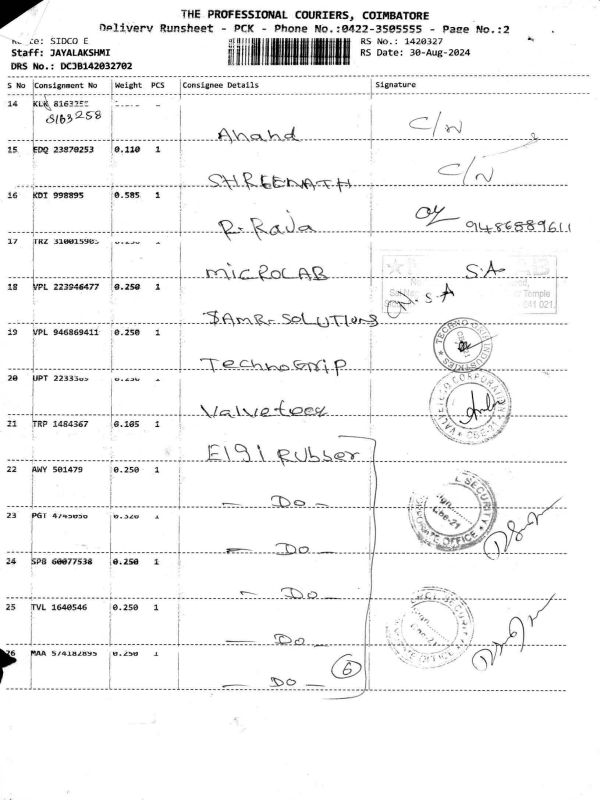 THE PROFESSIONAL COURIERS, COIMBATORE
Delivery Runsheet - PCK - Phone No.:0422-3505555 - Page No.:2
SIDCO E
RS No.: 1420327
Staff: JAYALAKSHMI
RS Date: 30-Aug-2024
DRS No.: DCJB142032702
S No Consignment No Weight PCS Consignee Details Signature
14 KLK 8163258
8163258
Anand C/N
15 EDQ 23870253 0.110 1
SHREENATH C/N
16 KDI 998895 0.585 1
R. Raja 9486889611
17 TRZ 310015985
MICROLAB S.A
18 VPL 223946477 0.250 1
N. S. A
Temple
641 021.
SAMR-SOLUTIONS
19 VPL 946869411 0.250 1
TechnoGrip
20 UPT 2233365 0.250 1
VALVETECO CORPORATION
CBE-21
Valveteco
21 TRP 1484367 0.105 1
Elgi Rubber
22 AWY 501479 0.250 1
— Do —
SECURITY
CBE-21
OFFICE
23 PGT 4745056 0.320 1
— Do —
24 SPB 60077538 0.250 1
— Do —
25 TVL 1640546 0.250 1
— Do —
SECURITY
OFFICE
26 MAA 574182895 0.250 1
6
— Do —